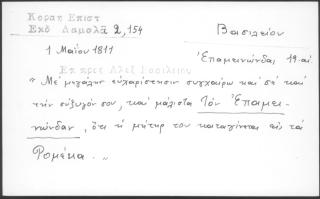 Κοραη Επιστ
Εκδ Δαμαλᾶ 2, 154
Βασιλείου
1 Μαΐου 1811
Ἐπαμεινώνδας, 19-αἰ.
Επ προς Αλεξ Βασιλειου
" Μὲ μεγάλην εὐχαρίστησιν συγχαίρω καὶ σὲ καὶ
τὴν σύζυγόν σου, καὶ μάλιστα Τὸν Ἐπαμει-
νώνδαν, ὅτι ἡ μήτηρ του κατάγεται εἰς τὰ
Ρομέικα. "